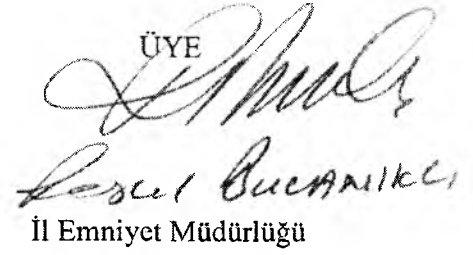 ÜYE
Resul BUCANIKLI
İl Emniyet Müdürlüğü